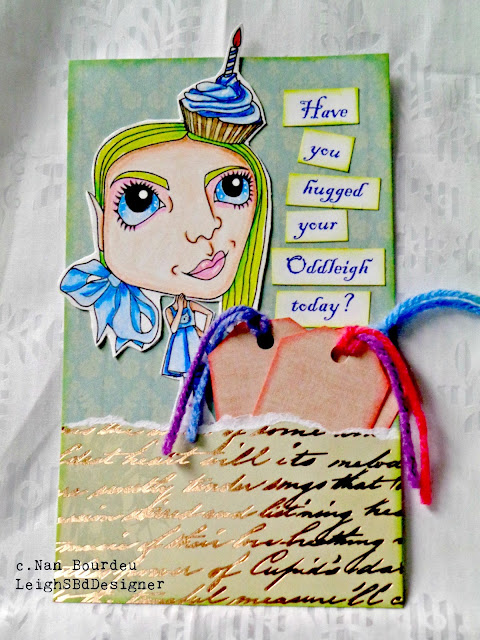 Have
you
hugged
your
Oddleigh
today?
come
heart till its melod
tender songs that
and list'ning
music of their
of Cupid's
measure'll
c.Nan Bourdeu
LeighSBdDesigner